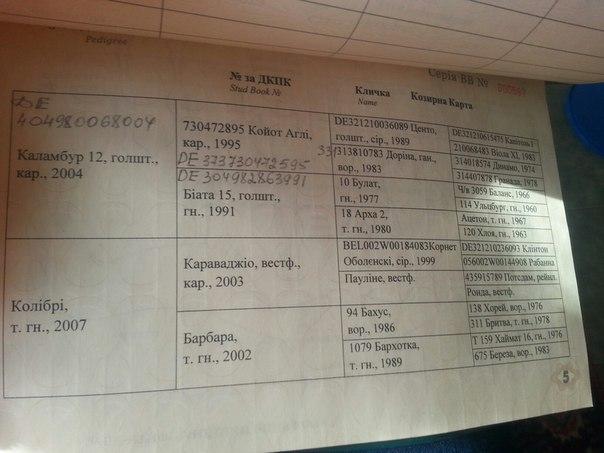 Pedigree
№ за ДКПК
Stud Book №
Кличка
Name
Козирна Карта
Серія ВВ №
DE
404980068004
Каламбур 12, голшт.,
кар., 2004
730472895 Койот Аглі,
кар., 1995
DE 373730472595
DE 304982863991
Біата 15, голшт.,
гн., 1991
DE321210036089 Центо,
голшт., сір., 1989
331
313810783 Доріна, ган.,
вор., 1983
10 Булат,
гн., 1977
18 Арха 2,
т. гн., 1980
DE321210615475 Капітол I
210068483 Віола XI, 1983
314018574 Динамо, 1974
314407878 Гранада, 1978
Ч/в 3059 Баланс, 1966
114 Ульцбург, гн., 1960
Ацетон, т. гн., 1967
120 Хлоя, гн., 1963
Колібрі,
т. гн., 2007
Караваджіо, вестф.,
кар., 2003
Барбара,
т. гн., 2002
BEL002W00184083Корнет
Оболенскі, сір., 1999
Пауліне, вестф.
94 Бахус,
вор., 1986
1079 Бархотка,
т. гн., 1989
DE321210236093 Клінтон
056002W00144908 Рабанна
435915789 Потсдам, рейнл.
Ронда, вестф.
138 Хорей, вор., 1976
311 Бритва, т. гн., 1978
Т 159 Хаймат 16, гн., 1976
675 Береза, вор., 1983
5